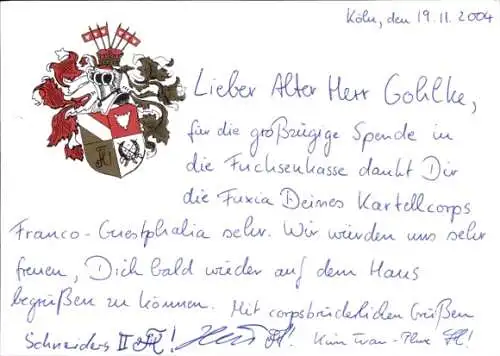 Köln, den 19.11.2004
Lieber Alter Herr Gohlke,
für die großzügige Spende in
die Fuchsenkasse dankt Dir
die Fuxia Deines Kartellcorps
Franco-Guestphalia sehr. Wir würden uns sehr
freuen, Dich bald wieder auf dem Haus
begrüßen zu können. Mit corpsbrüderlichen Grüßen
Schneiders II